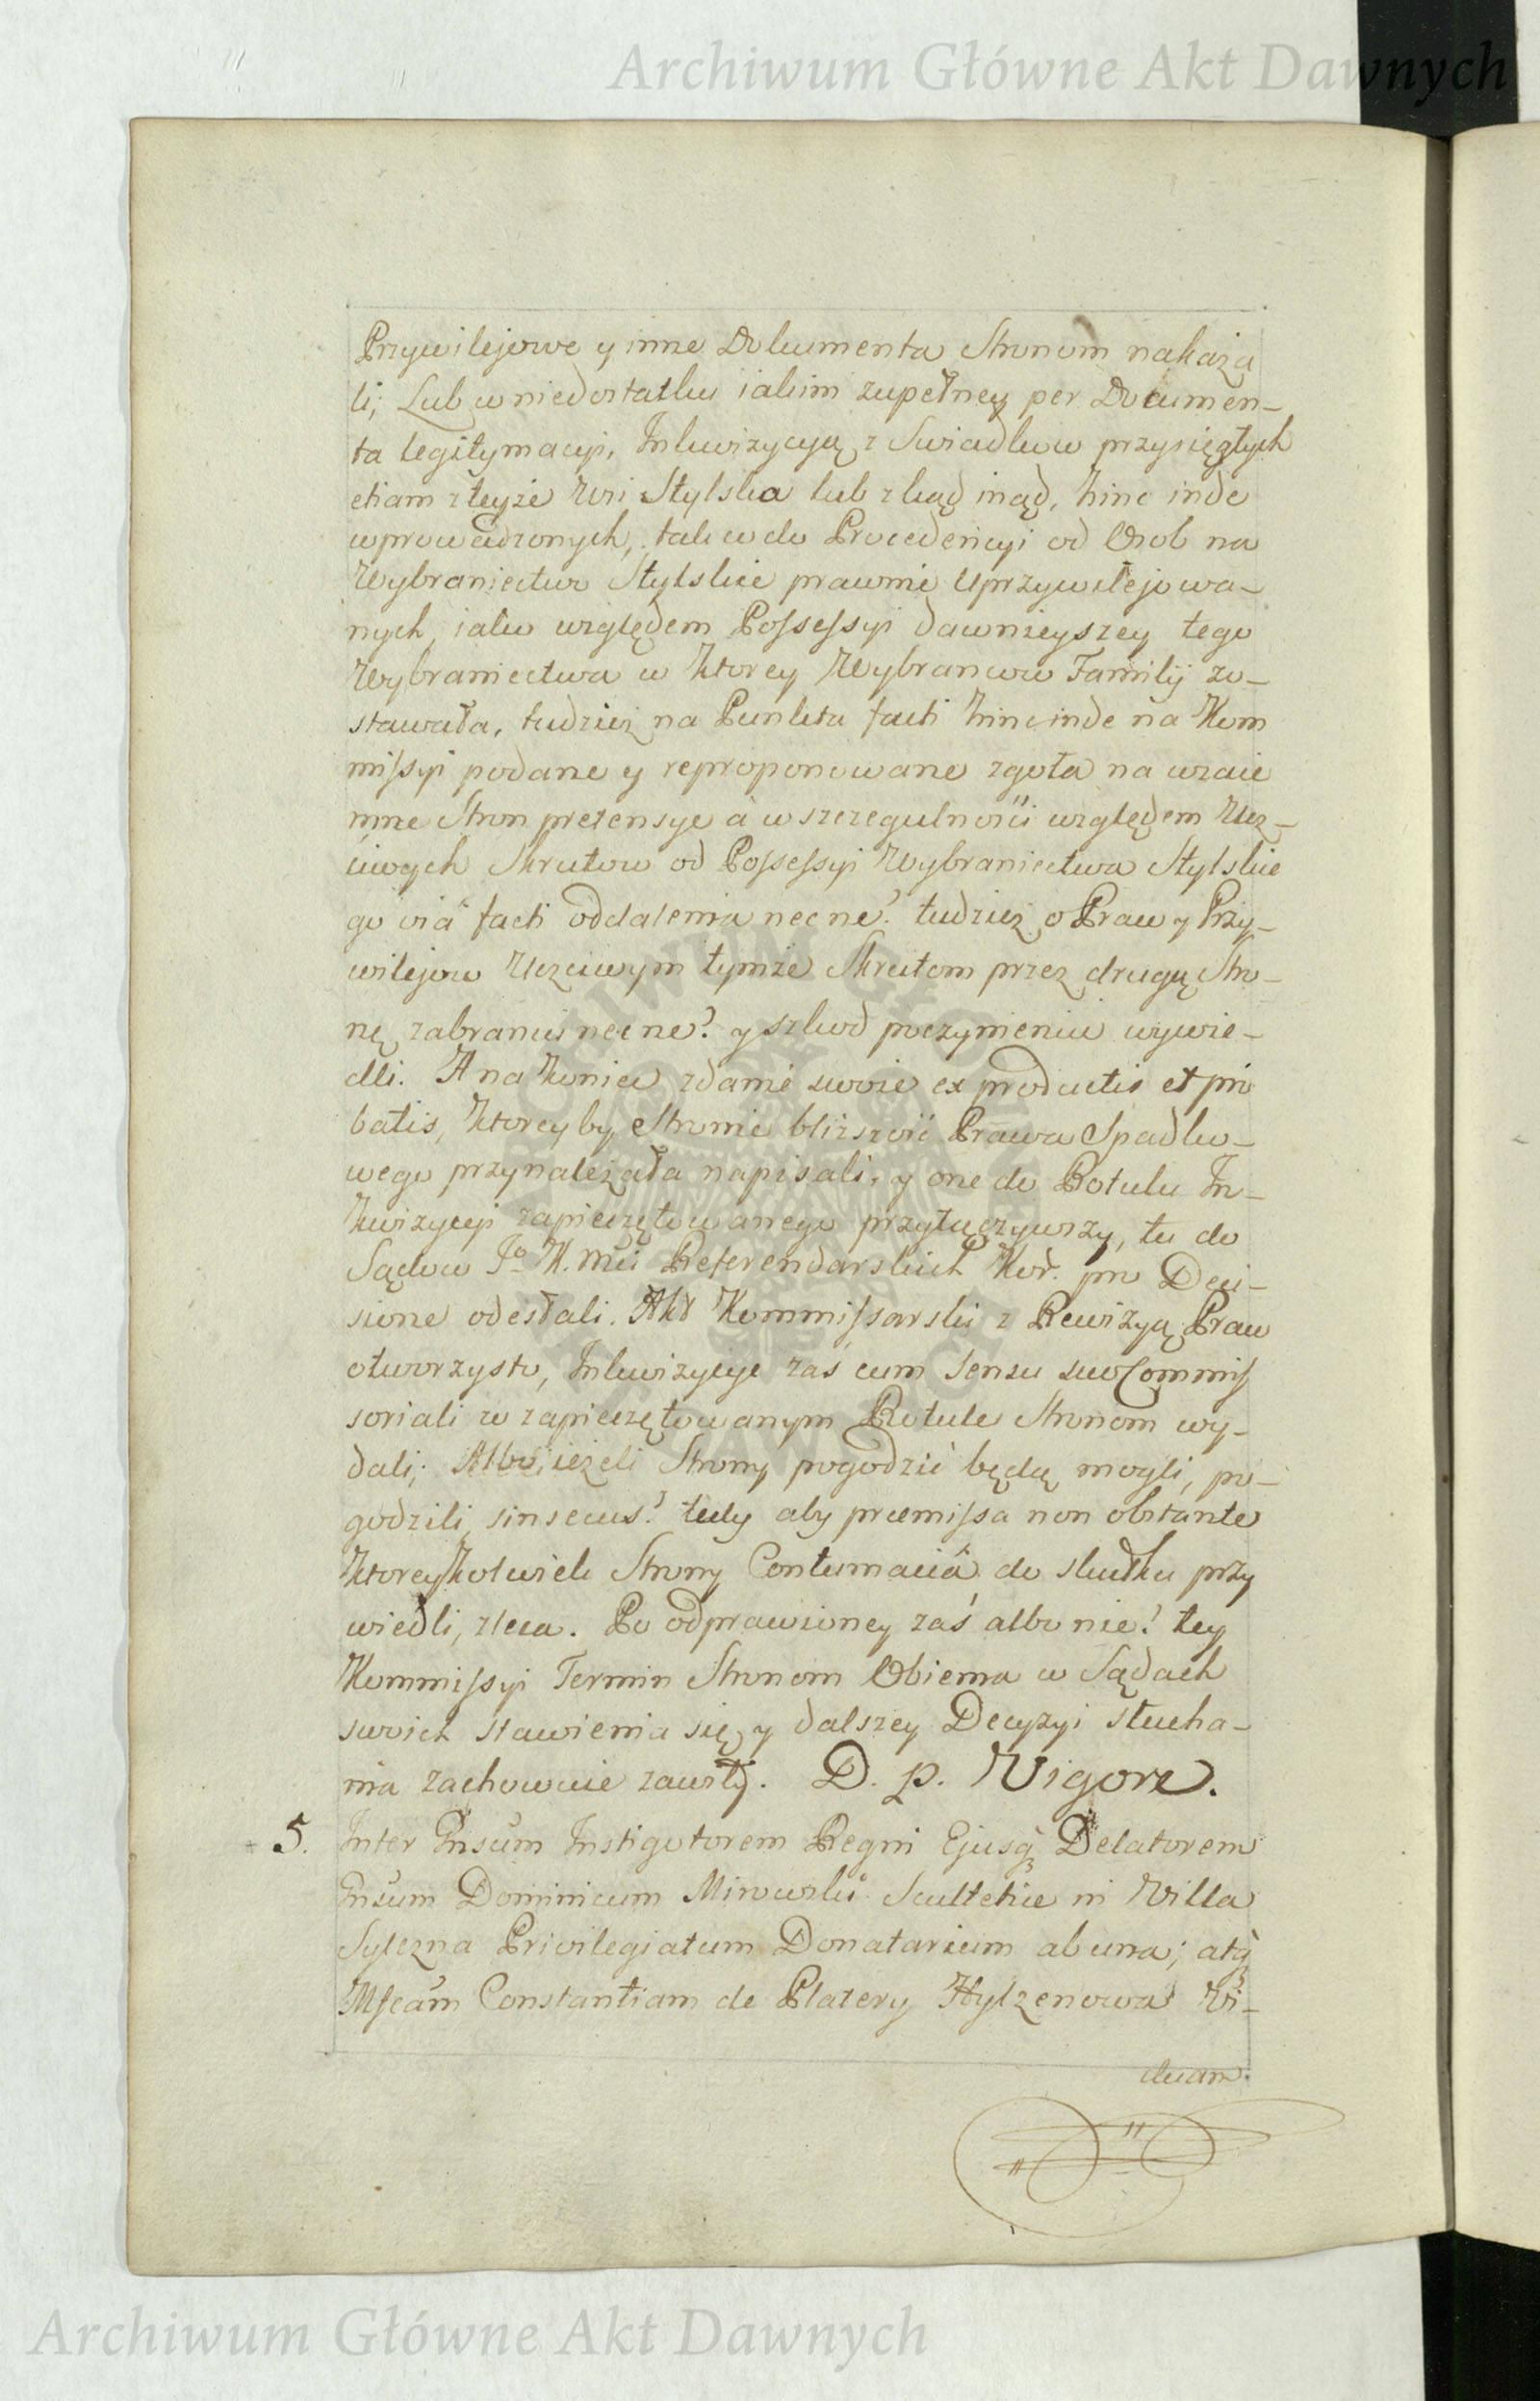 Archiwum Główne Akt Dawnych
Przywilejowe y inne Dokumenta Stronom nakaza
li; Lub w niedostatku iakim zupełney per Documen-
ta legitymacyi, Inkwizycyą z Swiadkow przysięgłych
etiam z teyże Wsi Stylska lub zkąd inąd, hinc inde
wprowadzonych, tak co do Procedencyi od Osob na
Wybraniectwo Stylskie prawnie Uprzywilejowa-
nych iako względem Possessyi dawnieyszey tego
Wybraniectwa w Ktorey Wybrancow Familij zo-
stawała, tudzież na Punkta facti hinc inde na Kom
missyi podane y reproponowane zgoła na wzaie
mne Stron pretensye à w szczegulności względem Ucz-
ciwych Skrutow od Possessyi Wybraniectwa Stylskie
go viâ facti oddalenia necne? tudzież o Praw y Przy-
wilejow Uczciwym tymże Skrutom przez drugą Stro-
nę zabraniu necne? y szkod poczynieniu wywie-
dli. A na Koniec zdanie swoie ex productis et pro
batis, Ktorey by Stronie bliższość Prawa Spadko-
wego przynależała napisali, y one do Rotulu In-
kwizycyi zapieczętowanego przyłączywszy, tu do
Sądow J.o K. Mci Referendarskich Kor. pro Deci-
sione odesłali. Akt Kommissarski z Rewizyą Praw
otworzysto, Inkwizycye zaś cum sensu suo Commis
soriali w zapieczętowanym Rotule Stronom wy-
dali; Albo, ieżeli Strony pogodzić będą mogli, po-
godzili, sin secus? tedy aby præmissa non obstante
Ktoreykolwiek Strony Contumaciâ do skutku przy
wiedli, zleca. Po odprawioney zaś albo nie! tey
Kommissyi Termin Stronom Obiema w Sądach
swoich stawienia się y dalszey Decyzyi słucha-
nia zachowuie zawity. D. p. Vigore.
5. Inter Gnsum Instigatorem Regni Ejusq Delatorem
Gnsum Dominicum Scultetiæ in Villa
Privilegiatum Donatarium ab una; atq
Mfcam Constantiam de Platery Hylzenowa Vi-
duam.
Archiwum Główne Akt Dawnych